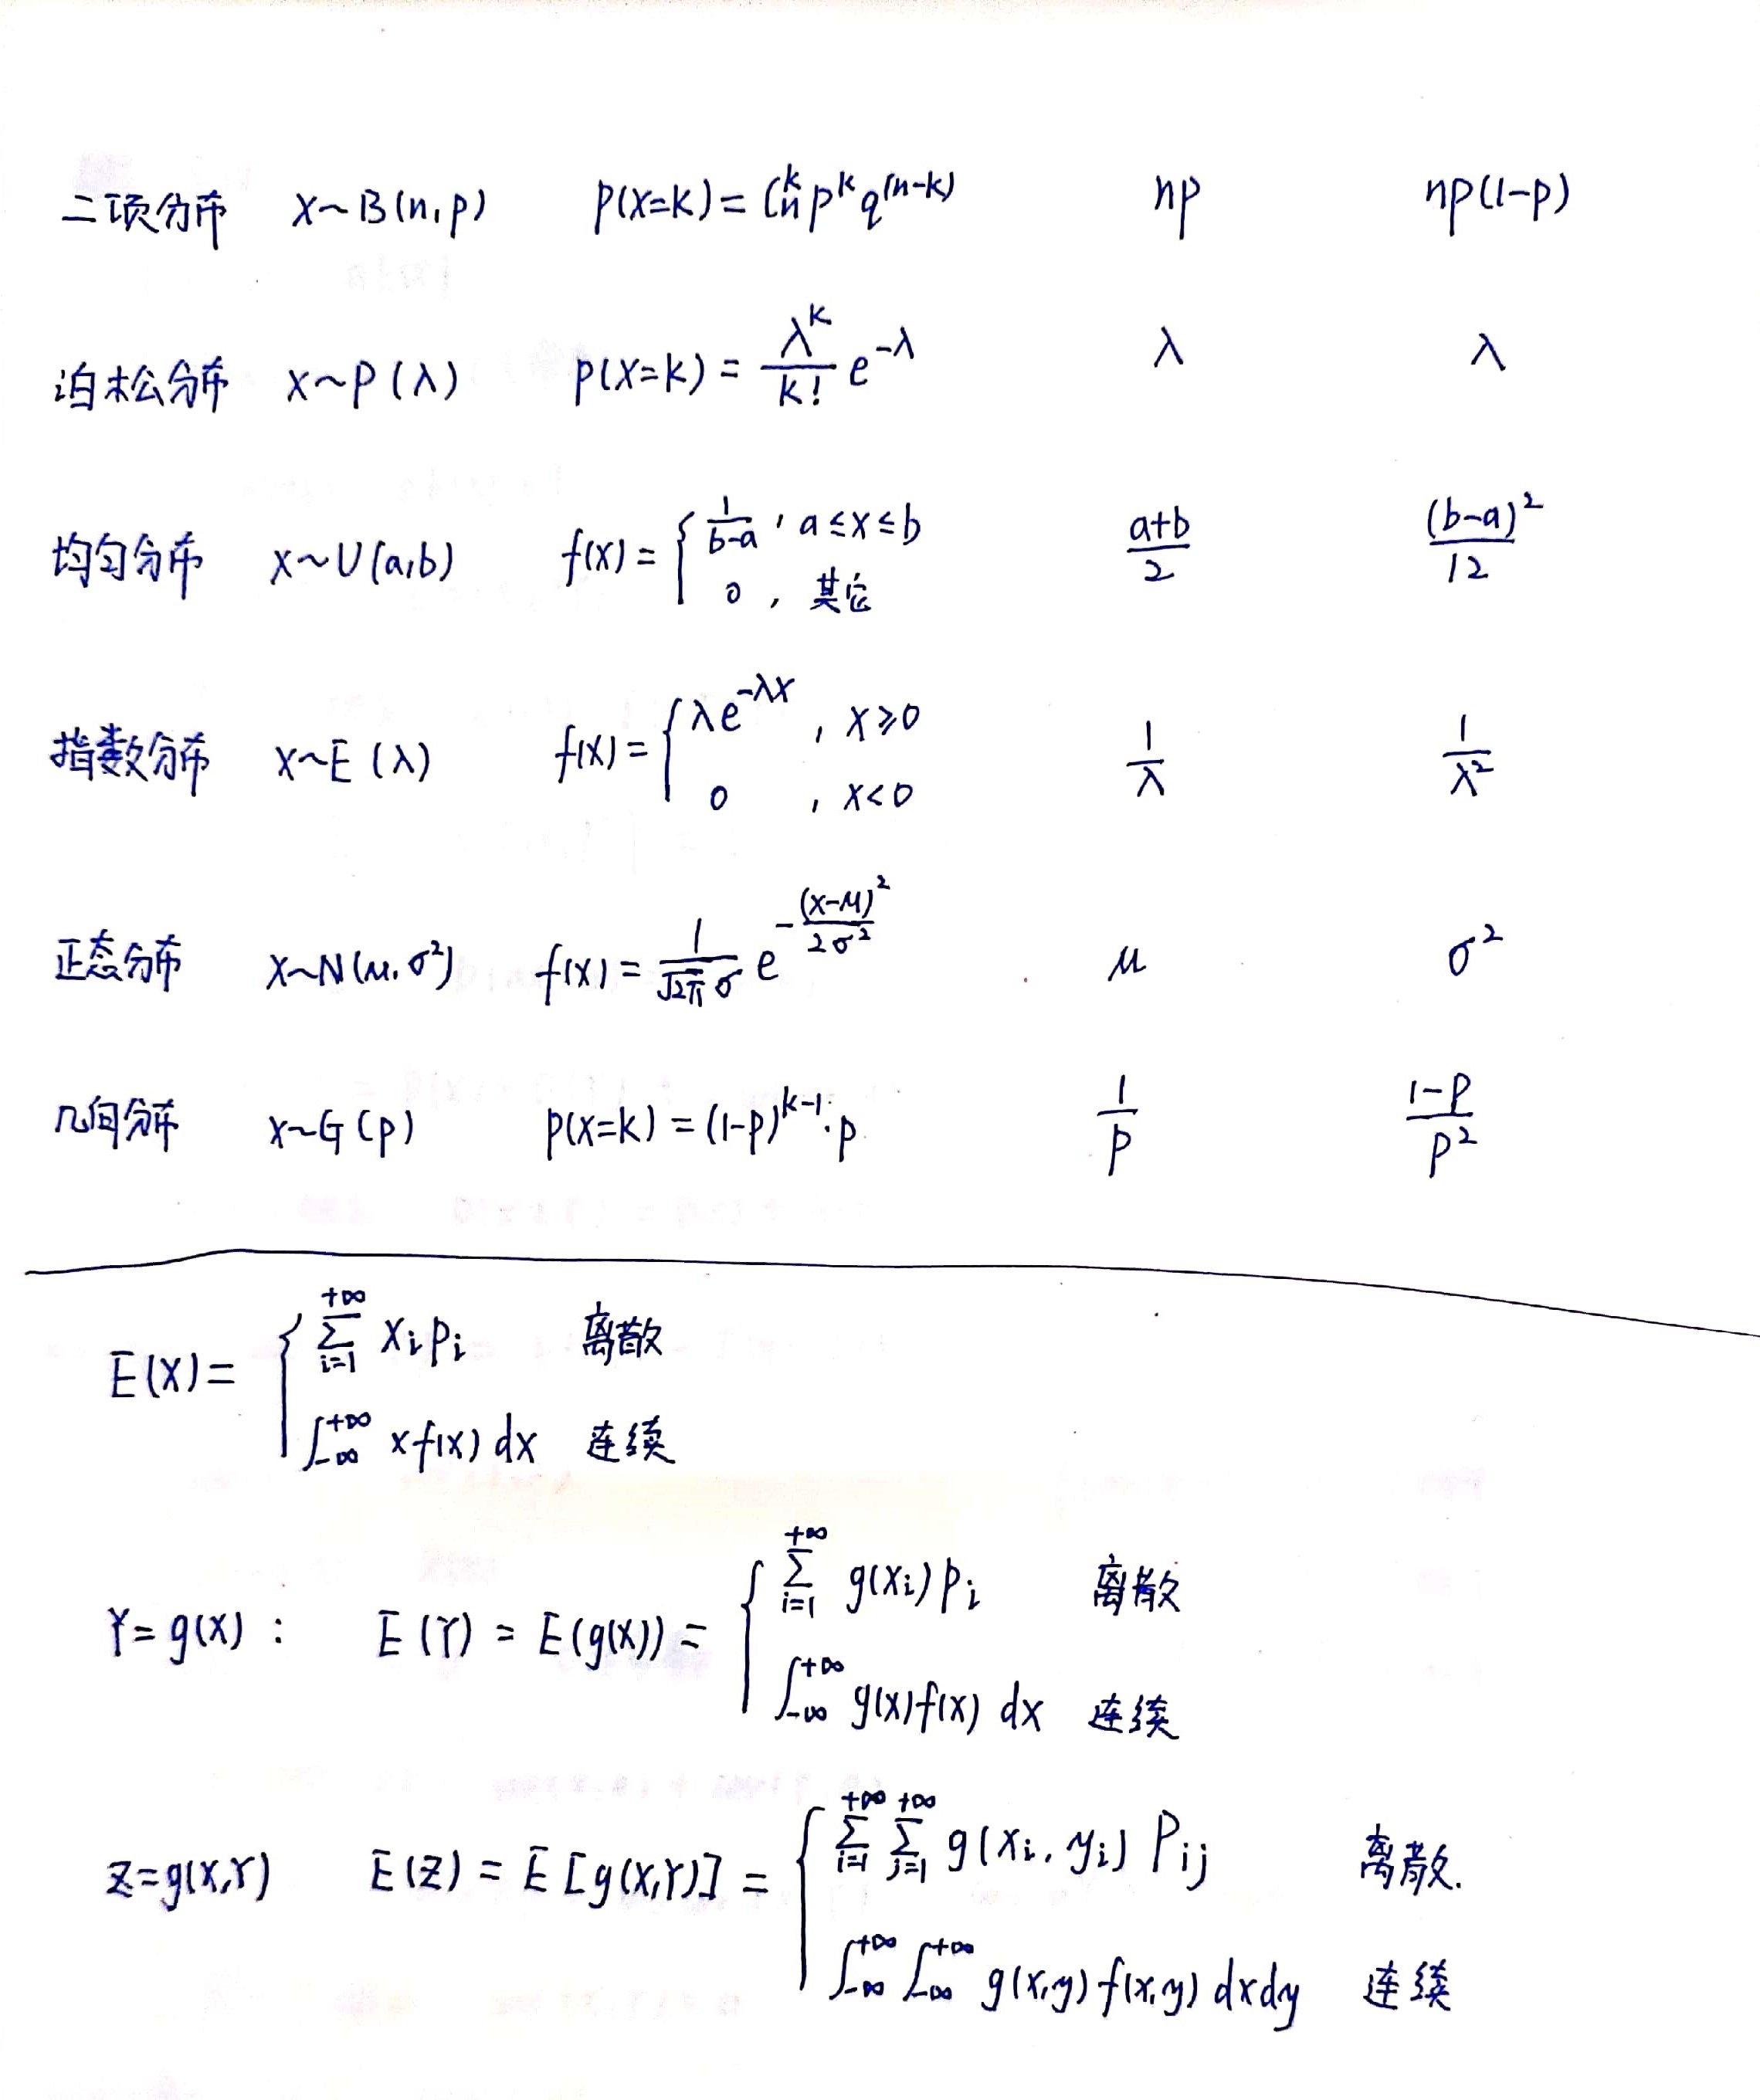 二项分布 X~B(n,p) P(X=k)=C_n^k p^k q^(n-k) np np(1-p)
泊松分布 X~P(λ) P(X=k)=λ^k/k! e^-λ λ λ
均匀分布 X~U(a,b) f(x)={ 1/(b-a), a≤x≤b (a+b)/2 (b-a)²/12
0, 其它
指数分布 X~E(λ) f(x)={ λe^-λx, x≥0 1/λ 1/λ²
0, x<0
正态分布 X~N(μ,σ²) f(x)=1/(√2π σ) e^-(x-μ)²/2σ² μ σ²
几何分布 X~G(p) P(X=k)=(1-p)^k-1·p 1/p (1-p)/p²
E(X)={ ∑_{i=1}^{+∞} x_i p_i 离散
∫_{-∞}^{+∞} xf(x)dx 连续
Y=g(X): E(Y)=E(g(X))={ ∑_{i=1}^{+∞} g(x_i)p_i 离散
∫_{-∞}^{+∞} g(x)f(x)dx 连续
Z=g(X,Y) E(Z)=E[g(X,Y)]={ ∑_{i=1}^{+∞} ∑_{j=1}^{+∞} g(x_i,y_i) P_ij 离散.
∫_{-∞}^{+∞} ∫_{-∞}^{+∞} g(x,y)f(x,y)dxdy 连续